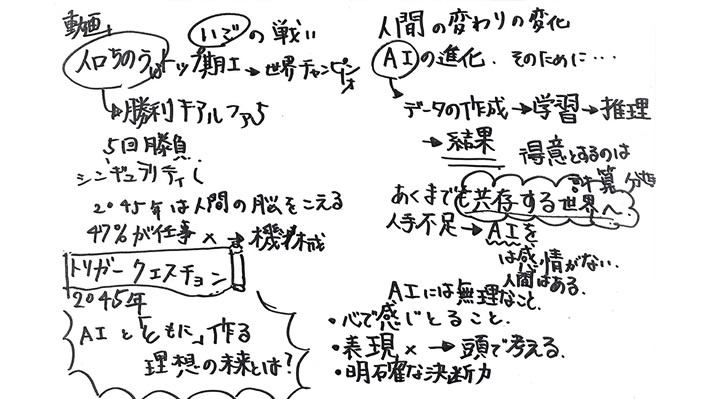 動画
いごの戦い
人口ちのう トップ期工→世界チャンピオン
→勝利 アルファ5
5回勝負
シンギュラリティ
2045年は人間の脳をこえる
47%が仕事×→機械
トリガークエスチョン
2045年
AIと「ともに」作る
理想の未来とは?
人間の変わりの変化
AIの進化.そのために…
→データの作成→学習→推理
→結果
得意とするのは
計算 分析
あくまでも共存する世界へ.
人手不足→AIを
は感情がない.
人間はある.
AIには無理なこと.
・心で感じとること.
・表現×→頭で考える.
・明確な決断力